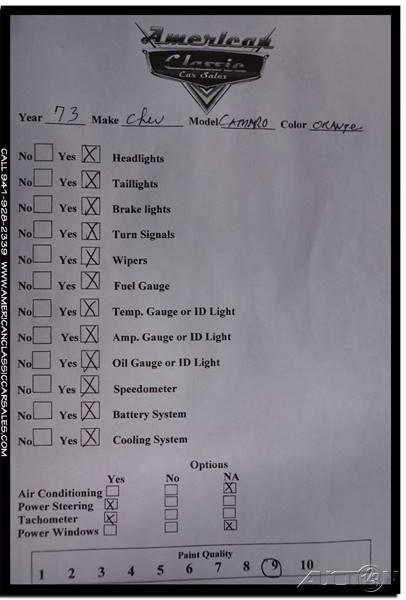 American
Classic
Car Sales
Year 73 Make Chev Model CAMARO Color ORANge
No Yes X Headlights
No Yes X Taillights
No Yes X Brake lights
No Yes X Turn Signals
No Yes X Wipers
No Yes X Fuel Gauge
No Yes X Temp. Gauge or ID Light
No Yes X Amp. Gauge or ID Light
No Yes X Oil Gauge or ID Light
No Yes X Speedometer
No Yes X Battery System
No Yes X Cooling System
Options
Yes No NA
Air Conditioning X
Power Steering X
Tachometer X
Power Windows X
Paint Quality
1 2 3 4 5 6 7 8 9 10
CALL 941-928-2339 WWW.AMERICANCLASSICCARSALES.COM